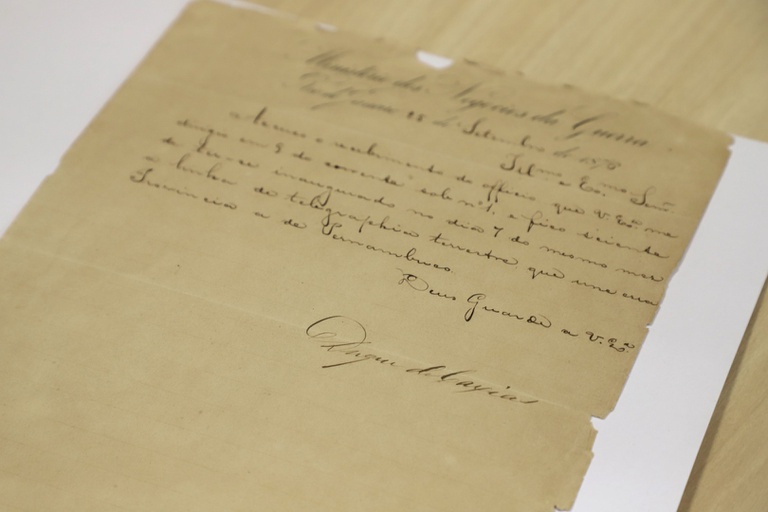 Ministerio dos Negocios da Guerra
28 de Setembro de 1875
Illmo e Exmo Senr.
Accuso o recebimento do officio que V. Exª me
dirigio em 9 do corrente sob nº 1, e fico sciente
de ter-se inaugurado no dia 7 do mesmo mez
a linha de telegraphia terrestre que une essa
Provincia a de Pernambuco
Deus Guarde a V. Exª
Duque de Caxias